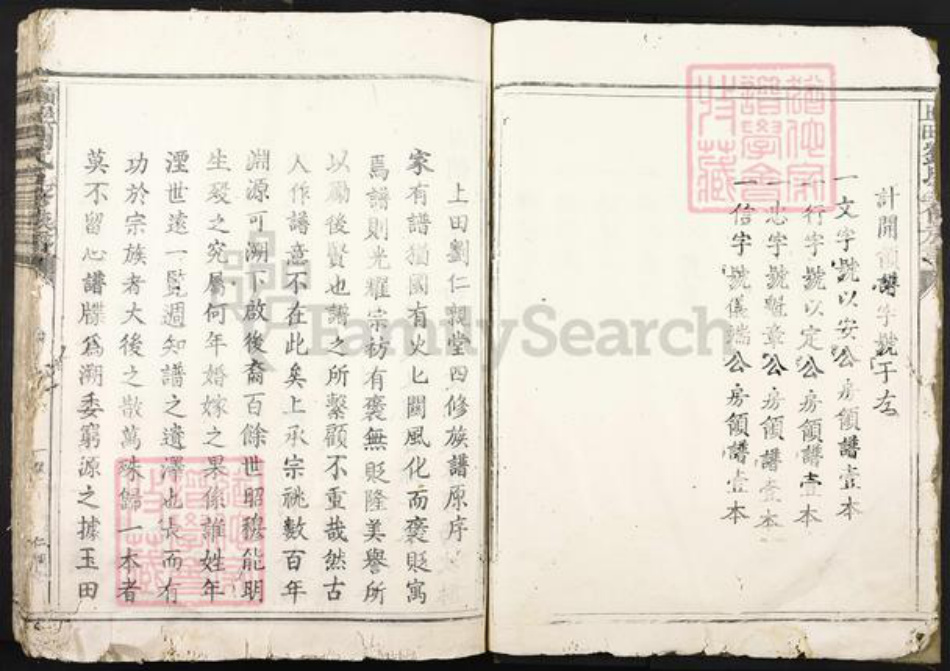 計開領譜字號于左
一文字號以安公房領譜壹本
一行字號以定公房領譜壹本
一忠字號魁章公房領譜壹本
一信字號儀端公房領譜壹本
上田劉仁親堂四修族譜原序
家有譜猶國有史匕關風化而褒貶寓
焉譜則光耀宗祊有褒無貶隆美譽所
以勵後賢也譜之所繫顧不重哉然古
人作譜意不在此矣上承宗祧數百年
淵源可溯下啟後裔百餘世昭穆能明
生歿之究屬何年婚嫁之果係誰姓年
湮世遠一覽週知譜之遺澤也長而有
功於宗族者大後之散萬殊歸一本者
莫不留心譜牒爲溯委窮源之據玉田
FamilySearch